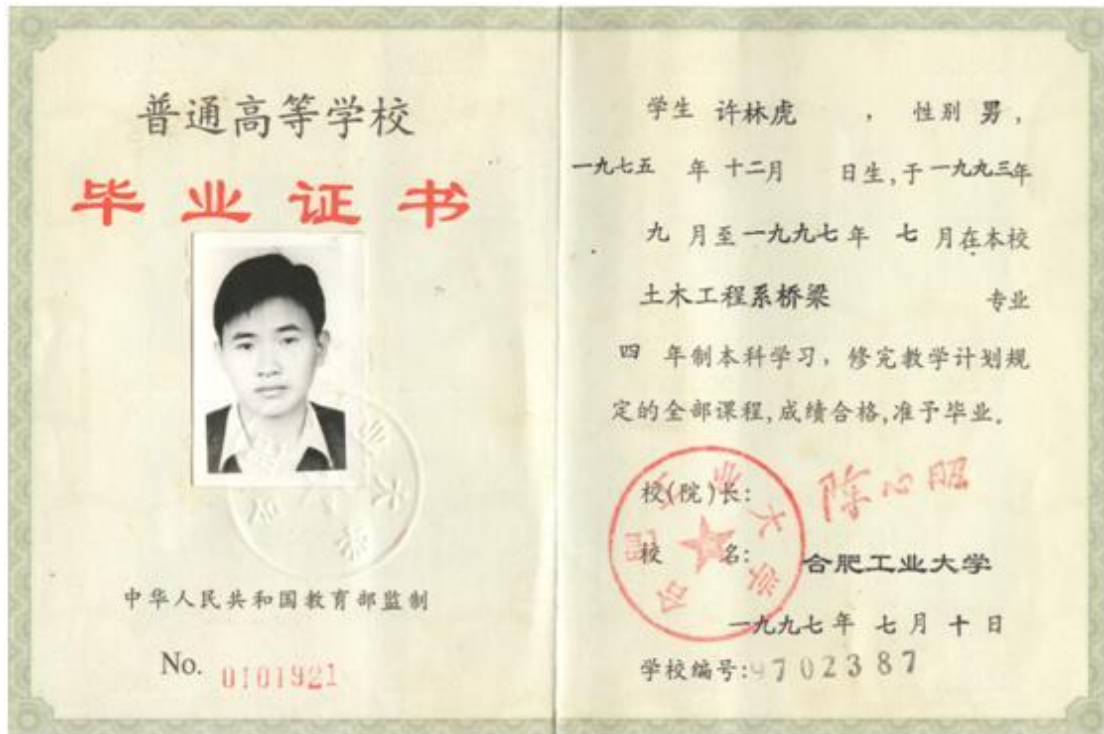 普通高等学校
毕业证书
中华人民共和国教育部监制
No. 0101921
学生 许林虎 ， 性别 男，
一九七五 年 十二月 日生,于一九九三年
九 月至一九九七年 七 月在本校
土木工程系桥梁 专业
四 年制本科学习，修完教学计划规
定的全部课程,成绩合格,准予毕业。
校(院)长: 陈心昭
校 名: 合肥工业大学
合肥工业大学
一九九七年 七月十日
学校编号:9702387